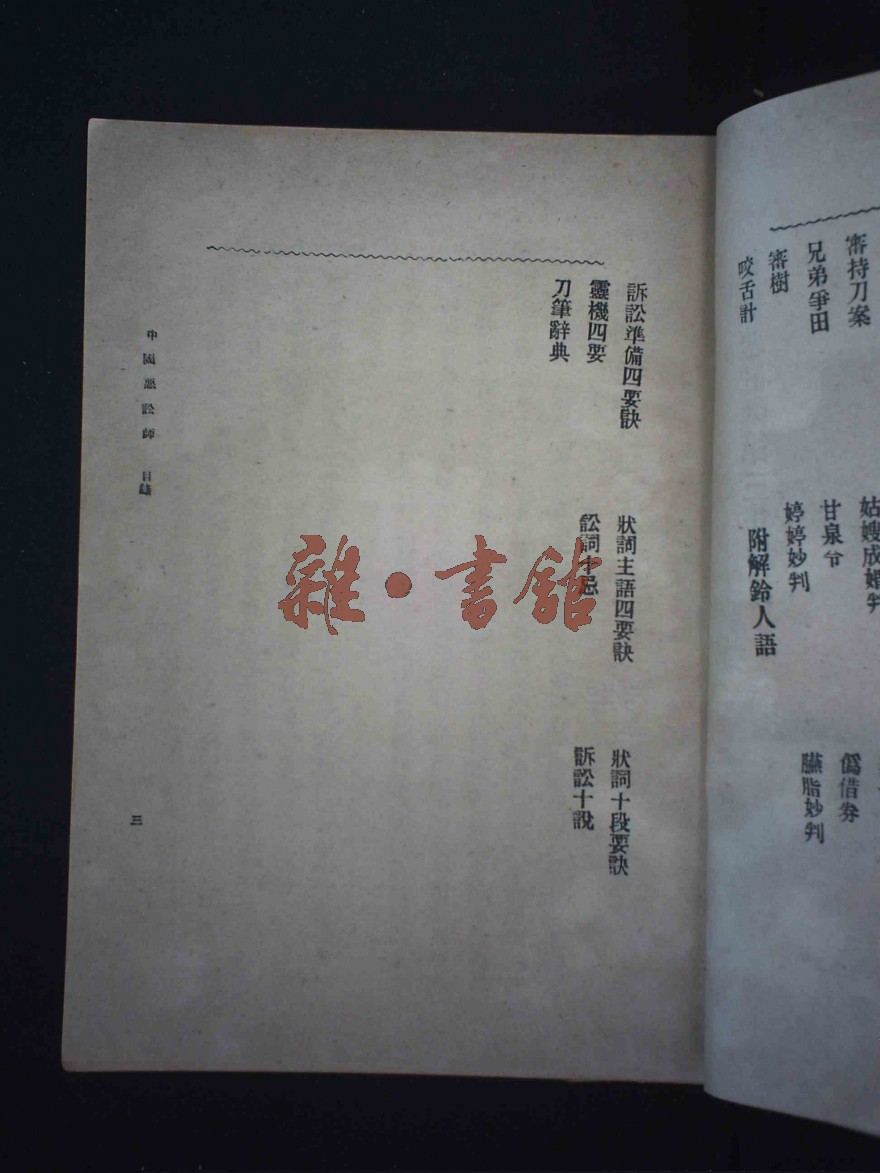 審持刀案
兄弟爭田
審樹
咬舌計
姑嫂成婚判
甘泉令
婷婷妙判
附解鈴人語
僞借券
臙脂妙判
訴訟準備四要訣
狀詞主語四要訣
狀詞十段要訣
靈機四要
訟詞十忌
訴訟十說
刀筆辭典
中國惡訟師 目錄
三
雜·書館